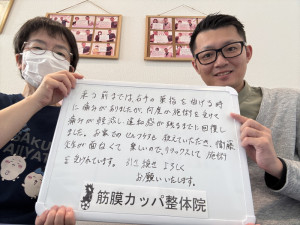 来る前までは、右手の薬指を曲げる時
に痛みがありましたが、何度か施術を受けて
痛みが軽減し、違和感が残るまでに回復し
ました。お家でのセルフケアも教えていただき、衛藤
先生が面白くて楽しいので、リラックスして施術
を受けれています。引き続きよろしく
お願いいたします。
筋膜カッパ整体院